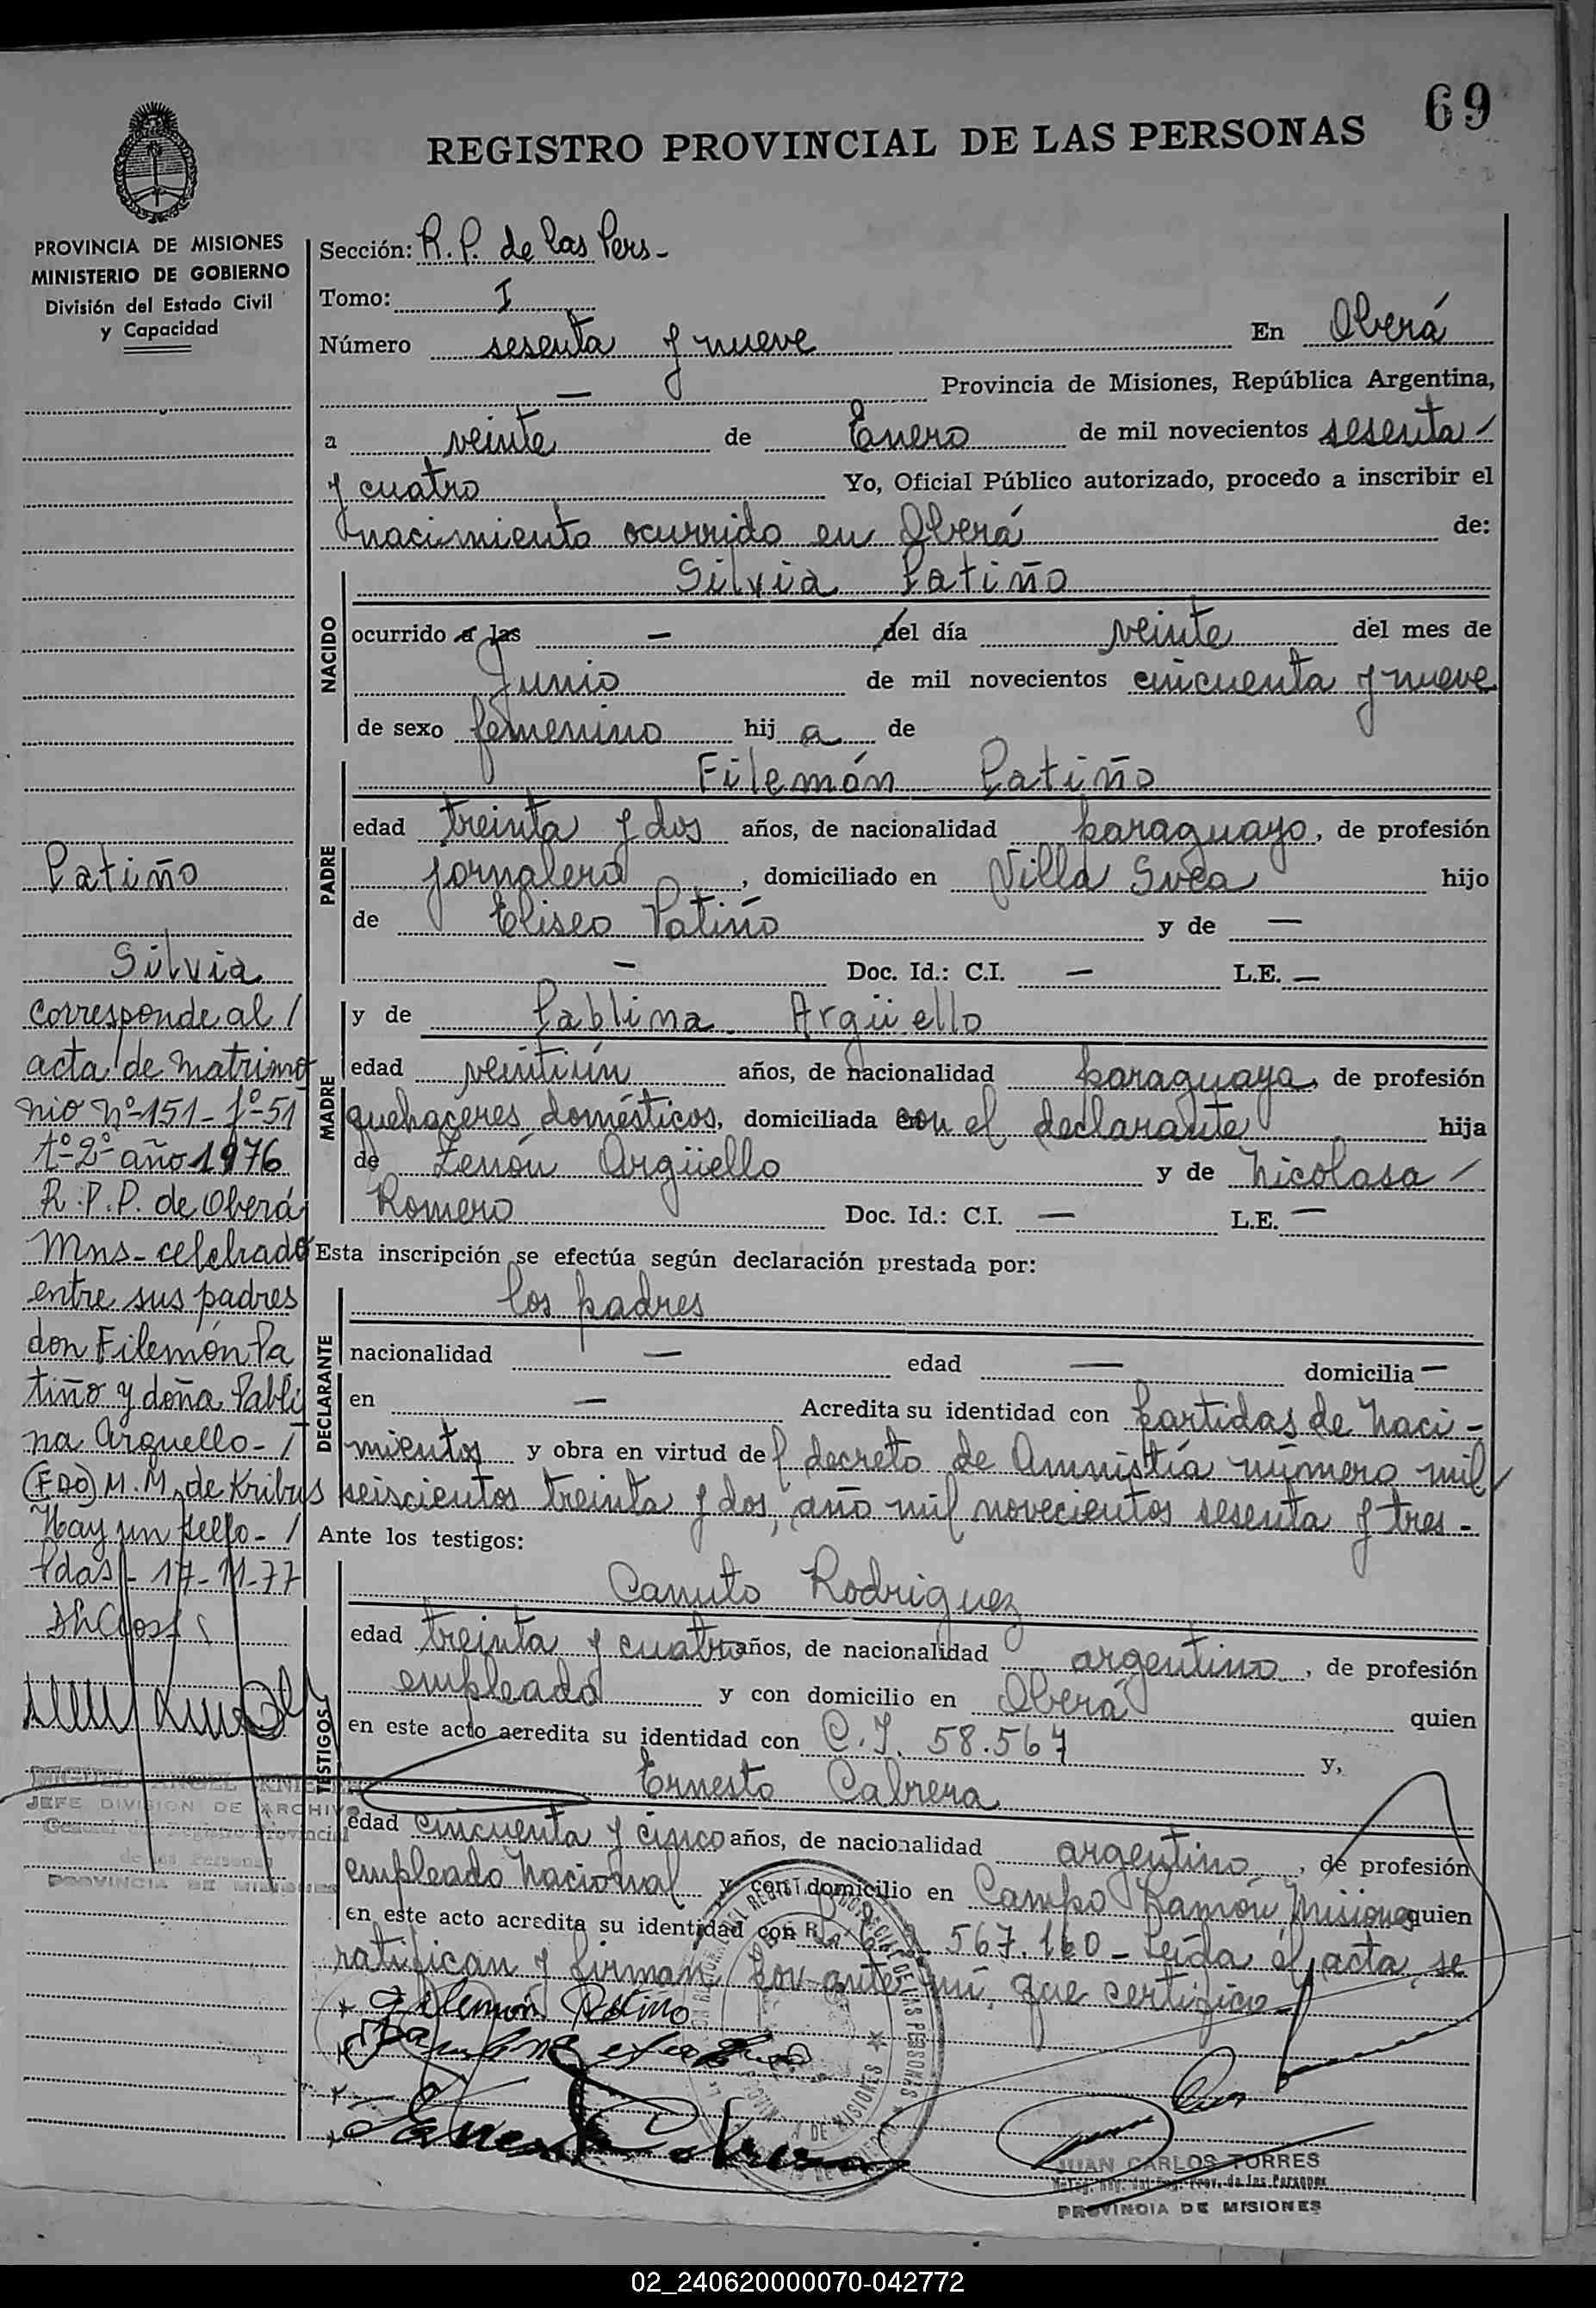 69
REGISTRO PROVINCIAL DE LAS PERSONAS
PROVINCIA DE MISIONES
MINISTERIO DE GOBIERNO
División del Estado Civil
y Capacidad
Sección: R.P. de las Pers-
Tomo: I
Número sesenta y nueve En Oberá
— Provincia de Misiones, República Argentina,
a veinte de Enero de mil novecientos sesenta/
y cuatro Yo, Oficial Público autorizado, procedo a inscribir el
nacimiento ocurrido en Oberá de:
Silvia Patiño
NACIDO
ocurrido a las — del día veinte del mes de
Junio de mil novecientos cincuenta y nueve
de sexo femenino hij a de
Filemón Patiño
PADRE
edad treinta y dos años, de nacionalidad paraguayo, de profesión
jornalero, domiciliado en Villa Svea hijo
de Eliseo Patiño y de —
— Doc. Id.: C.I. — L.E. —
y de Pablina Argüello
MADRE
edad veintiún años, de nacionalidad paraguaya, de profesión
quehaceres domésticos, domiciliada con el declarante hija
de Zenón Argüello y de Nicolasa/
Romero Doc. Id.: C.I. — L.E. —
Esta inscripción se efectúa según declaración prestada por:
los padres
DECLARANTE
nacionalidad — edad — domicilia —
en — Acredita su identidad con partidas de naci-
mientos y obra en virtud del decreto de Amnistía número mil/
seiscientos treinta y dos, año mil novecientos sesenta y tres-
Ante los testigos:
Canuto Rodriguez
TESTIGOS
edad treinta y cuatro años, de nacionalidad argentino, de profesión
empleado y con domicilio en Oberá quien
en este acto acredita su identidad con C.I. 58.567 y,
Ernesto Cabrera
edad cincuenta y cinco años, de nacionalidad argentino, de profesión
empleado nacional y con domicilio en Campo Ramón, Misiones quien
en este acto acredita su identidad con 567.160- Leída el acta, se
ratifican y firman por ante mí, que certifico-
Filemón Patiño
Ernesto Cabrera
JUAN CARLOS TORRES
PROVINCIA DE MISIONES
Patiño
Silvia
Corresponde al/
acta de matrimo
nio Nº-151-fº-51
tº-2º-año 1976
R.P.P. de Oberá
Mns- celebrado
entre sus padres
don Filemón Pa
tiño y doña Pabli
na Arguello-/
(FDO) M.M. de Kribus
Hay un sello-/
Pdas- 17-11-77
MIGUEL ANGEL
JEFE DIVISION DE ARCHIVO
General del Registro Provincial
de las Personas
PROVINCIA DE MISIONES
02_240620000070-042772